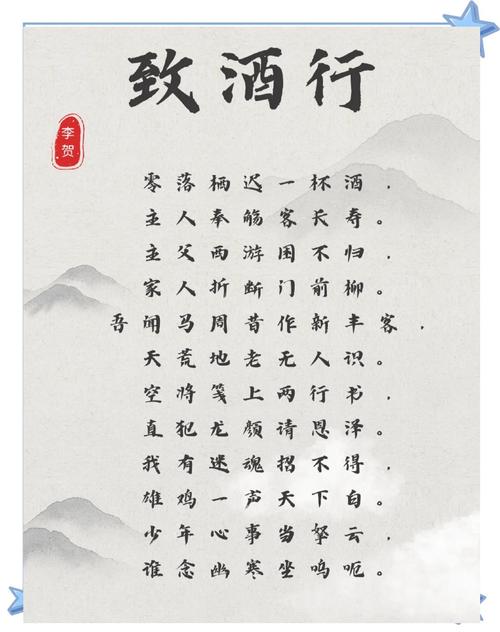 致酒行
李贺
零落栖迟一杯酒，
主人奉觞客长寿。
主父西游困不归，
家人折断门前柳。
吾闻马周昔作新丰客，
天荒地老无人识。
空将笺上两行书，
直犯龙颜请恩泽。
我有迷魂招不得，
雄鸡一声天下白。
少年心事当拏云，
谁念幽寒坐呜呃。